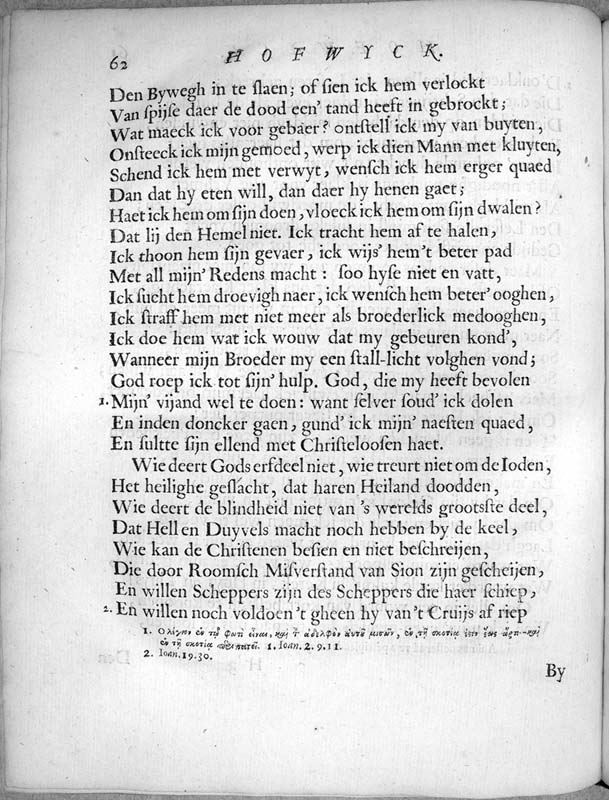 62 HOFWYCK.
Den Bywegh in te slaen; of sien ick hem verlockt
Van spijse daer de dood een' tand heeft in gebrockt;
Wat maeck ick voor gebaer? ontstell' ick my van buyten,
Onsteeck ick mijn gemoed, werp ick dien Mann met kluyten,
Schend ick hem met verwyt, wensch ick hem erger quaed
Dan dat hy eten will, dan daer hy henen gaet;
Haet ick hem om sijn doen, vloeck ick hem om sijn dwalen?
Dat lij den Hemel niet. Ick tracht hem af te halen,
Ick thoon hem sijn gevaer, ick wijs' hem 't beter pad
Met all mijn' Redens macht: soo hyse niet en vatt,
Ick sucht hem droevigh naer, ick wensch hem beter' ooghen,
Ick straff hem met niet meer als broederlick medooghen,
Ick doe hem wat ick wouw dat my gebeuren kond',
Wanneer mijn Broeder my een stall-licht volghen vond;
God roep ick tot sijn' hulp. God, die my heeft bevolen
1. Mijn' vijand wel te doen: want selver soud' ick dolen
En inden doncker gaen, gund' ick mijn' naesten quaed,
En sultte sijn ellend met Christeloosen haet.
Wie deert Gods erfdeel niet, wie treurt niet om de Ioden,
Het heilighe geslacht, dat haren Heiland doodden,
Wie deert de blindheid niet van 's werelds grootste deel,
Dat Hell en Duyvels macht noch hebben by de keel,
Wie kan de Christenen besien en niet beschreijen,
Die door Roomsch Misverstand van Sion zijn gescheijen,
En willen Scheppers zijn des Scheppers die haer schiep,
2. En willen noch voldoen 't gheen hy van't Cruijs af riep
1. Ὁ λέγων ἐν τῷ φωτὶ εἶναι, καὶ τ ἀδελφὸν αὐτοῦ μισῶν, ἐν τῇ σκοτίᾳ ἐστὶν ἕως ἄρτι. - καὶ
ἐν τῇ σκοτίᾳ περιπατεῖ. 1. Ioan. 2. 9. 11.
2. Ioan. 19. 30.
By